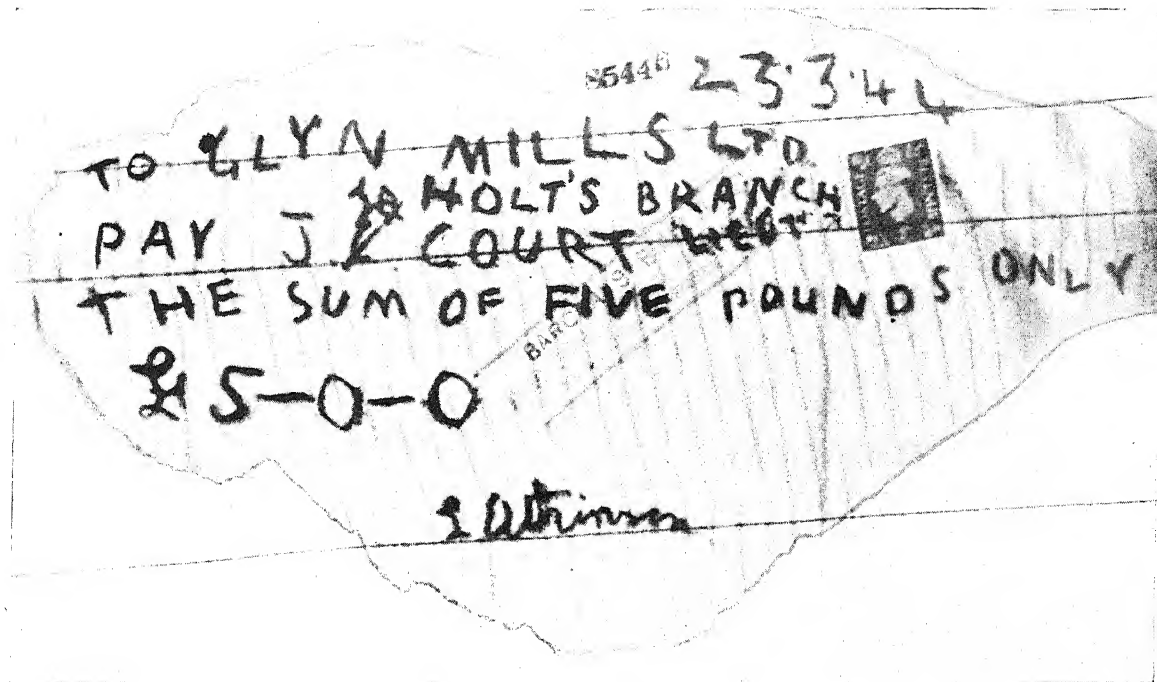 85446 23.3.44
TO GLYN MILLS LTD.
HOLT'S BRANCH
PAY J COURT
THE SUM OF FIVE POUNDS ONLY
£ 5-0-0
Atkinson